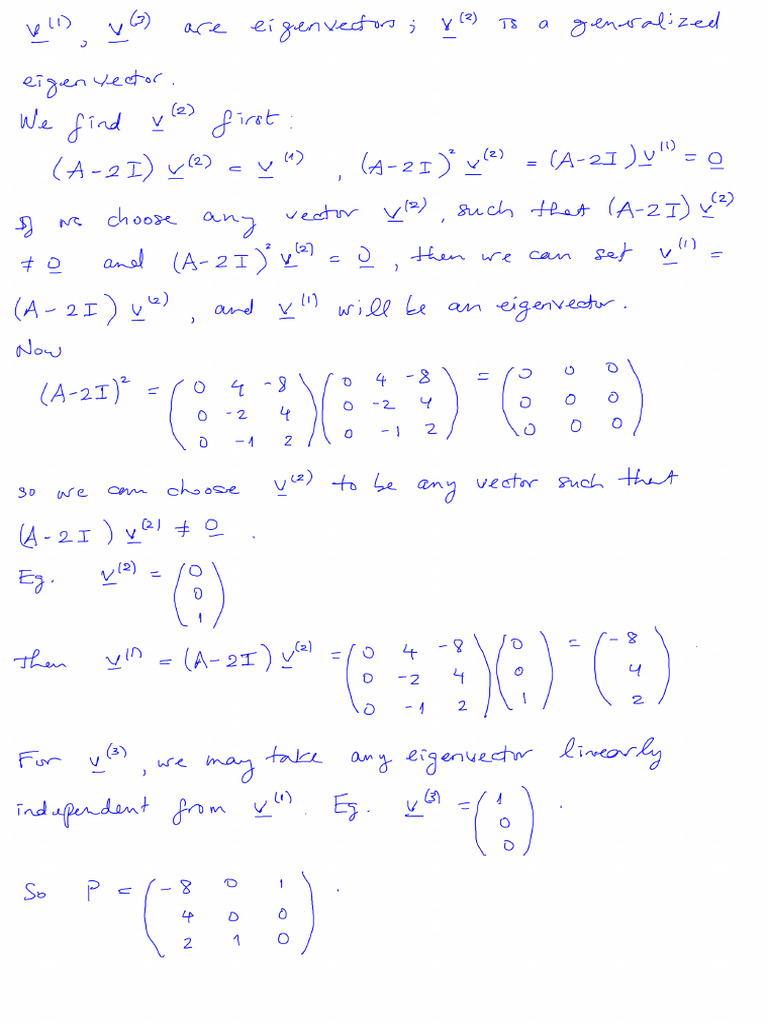 v⁽¹⁾, v⁽³⁾ are eigenvectors; v⁽²⁾ is a generalized
eigenvector.
We find v⁽²⁾ first:
(A-2I) v⁽²⁾ = v⁽¹⁾ , (A-2I)² v⁽²⁾ = (A-2I) v⁽¹⁾ = 0
If we choose any vector v⁽²⁾, such that (A-2I) v⁽²⁾
≠ 0 and (A-2I)² v⁽²⁾ = 0, then we can set v⁽¹⁾ =
(A-2I) v⁽²⁾, and v⁽¹⁾ will be an eigenvector.
Now
(A-2I)² = (0 4 -8; 0 -2 4; 0 -1 2) (0 4 -8; 0 -2 4; 0 -1 2) = (0 0 0; 0 0 0; 0 0 0)
so we can choose v⁽²⁾ to be any vector such that
(A-2I) v⁽²⁾ ≠ 0 .
Eg. v⁽²⁾ = (0; 0; 1)
Then v⁽¹⁾ = (A-2I) v⁽²⁾ = (0 4 -8; 0 -2 4; 0 -1 2) (0; 0; 1) = (-8; 4; 2) .
For v⁽³⁾, we may take any eigenvector linearly
independent from v⁽¹⁾. Eg. v⁽³⁾ = (1; 0; 0) .
So P = (-8 0 1; 4 0 0; 2 1 0) .